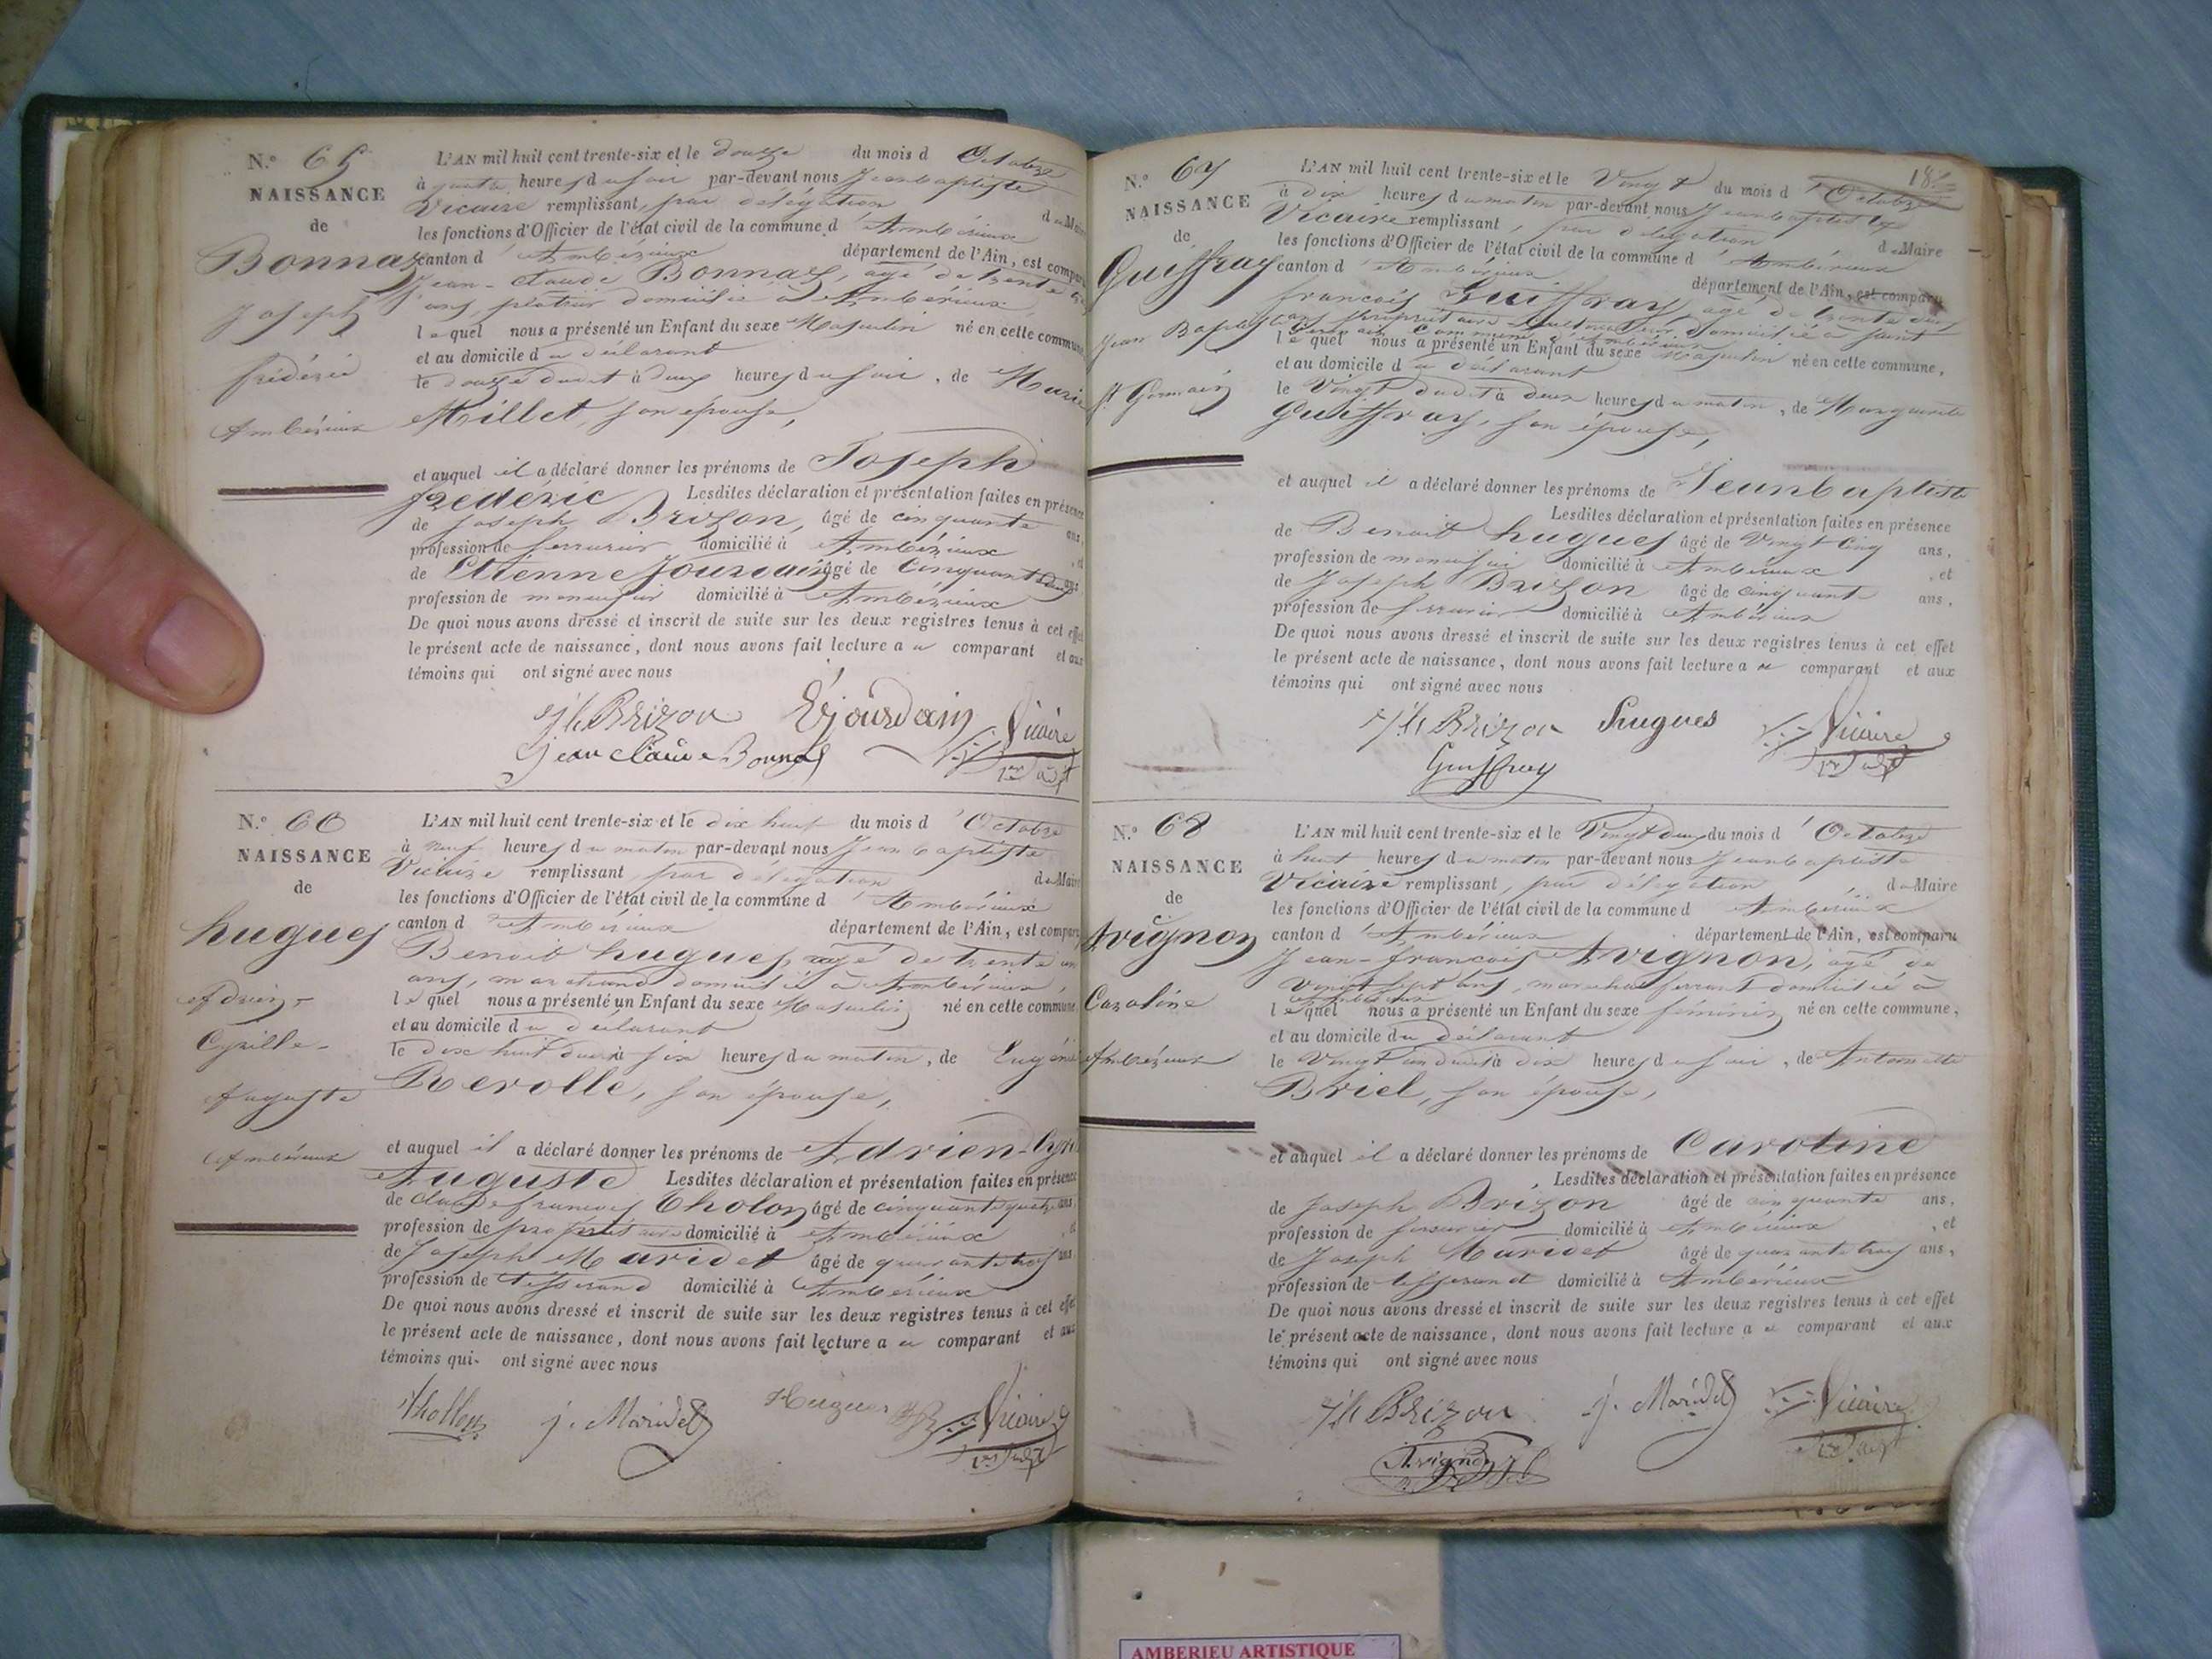 N.º 65
NAISSANCE
de
Bonnaz
Joseph
frédéric
Ambérieux
L'AN mil huit cent trente-six et le douze du mois d'Octobre
à quatre heures du soir par-devant nous Jeanbaptiste
Vicaire remplissant, par délégation du Maire
les fonctions d'Officier de l'état civil de la commune d'Ambérieux
canton d'Ambérieux département de l'Ain, est comparu
Jean-claude Bonnaz, agé de trente
ans, platrier domicilié à Ambérieux
lequel nous a présenté un Enfant du sexe Masculin né en cette commune
et au domicile du déclarant
le douze dudit à deux heures du soir, de Marie
Millet, son épouse,
et auquel il a déclaré donner les prénoms de Joseph
frédéric Lesdites déclaration et présentation faites en présence
de Joseph Brizon, âgé de cinquante ans,
profession de serrurier domicilié à Ambérieux, et
de Etienne Jourdain âgé de Cinquante
profession de menuisier domicilié à Ambérieux
De quoi nous avons dressé et inscrit de suite sur les deux registres tenus à cet effet
le présent acte de naissance, dont nous avons fait lecture au comparant et aux
témoins qui ont signé avec nous
Jh Brizon Ejourdain Vicaire
Jean claude Bonnaz
N.º 66
NAISSANCE
de
hugues
Adrien-
Cyrille-
Auguste
Ambérieux
L'AN mil huit cent trente-six et le dix huit du mois d'Octobre
à neuf heures du matin par-devant nous Jeanbaptiste
Vicaire remplissant, par délégation du Maire
les fonctions d'Officier de l'état civil de la commune d'Ambérieux
canton d'Ambérieux département de l'Ain, est comparu
Benoit hugues, agé de trente un
ans, marchand domicilié à Ambérieux,
lequel nous a présenté un Enfant du sexe Masculin né en cette commune
et au domicile du déclarant
le dix huit dudit à six heures du matin, de Eugénie
Rerolle, son épouse,
et auquel il a déclaré donner les prénoms de Adrien-Cyri
Auguste Lesdites déclaration et présentation faites en présence
de Claude francois Tholon âgé de cinquante quatre ans,
profession de propriétaire domicilié à Ambérieux, et
de Joseph Maridet âgé de quarante trois ans
profession de tisserand domicilié à Ambérieux
De quoi nous avons dressé et inscrit de suite sur les deux registres tenus à cet effet
le présent acte de naissance, dont nous avons fait lecture au comparant et aux
témoins qui ont signé avec nous
Thollon j. Maridet Hugues Vicaire
N.º 67
NAISSANCE
de
Guiffray
Jean Baptiste
St Germain
L'AN mil huit cent trente-six et le Vingt du mois d'Octobre
à dix heures du matin par-devant nous Jeanbaptiste
Vicaire remplissant, par délégation du Maire
les fonctions d'Officier de l'état civil de la commune d'Ambérieux
canton d'Ambérieux département de l'Ain, est comparu
francois Guiffray agé de trente
ans propriétaire Cultivateur, domicilié à Saint
Germain Commune d'Ambérieux
lequel nous a présenté un Enfant du sexe Masculin né en cette commune,
et au domicile du déclarant
le Vingt dudit à deux heures du matin, de Marguerite
Guiffray, son épouse,
et auquel il a déclaré donner les prénoms de Jeanbaptiste
Lesdites déclaration et présentation faites en présence
de Benoit hugues âgé de Vingt Cinq ans,
profession de menuisier domicilié à Ambérieux, et
de Joseph Brizon âgé de cinquante ans,
profession de serrurier domicilié à Ambérieux
De quoi nous avons dressé et inscrit de suite sur les deux registres tenus à cet effet
le présent acte de naissance, dont nous avons fait lecture au comparant et aux
témoins qui ont signé avec nous
Jh Brizon hugues Vicaire
Guiffray
N.º 68
NAISSANCE
de
Avignon
Caroline
Ambérieux
L'AN mil huit cent trente-six et le Vingt deux du mois d'Octobre
à huit heures du matin par-devant nous Jeanbaptiste
Vicaire remplissant, par délégation du Maire
les fonctions d'Officier de l'état civil de la commune d Ambérieux
canton d'Ambérieux département de l'Ain, est comparu
Jean-francois Avignon, agé de
Vingt sept ans, maréchal ferrant domicilié à
Ambérieux
lequel nous a présenté un Enfant du sexe féminin né en cette commune,
et au domicile du déclarant
le Vingt un dudit à dix heures du soir, de Antoinette
Briel, son épouse,
et auquel il a déclaré donner les prénoms de Caroline
Lesdites déclaration et présentation faites en présence
de Joseph Brizon âgé de cinquante ans,
profession de serrurier domicilié à Ambérieux, et
de Joseph Maridet âgé de quarante trois ans,
profession de tisserand domicilié à Ambérieux
De quoi nous avons dressé et inscrit de suite sur les deux registres tenus à cet effet
le présent acte de naissance, dont nous avons fait lecture au comparant et aux
témoins qui ont signé avec nous
Jh Brizon j. Maridet Vicaire
Avignon
AMBERIEU ARTISTIQUE